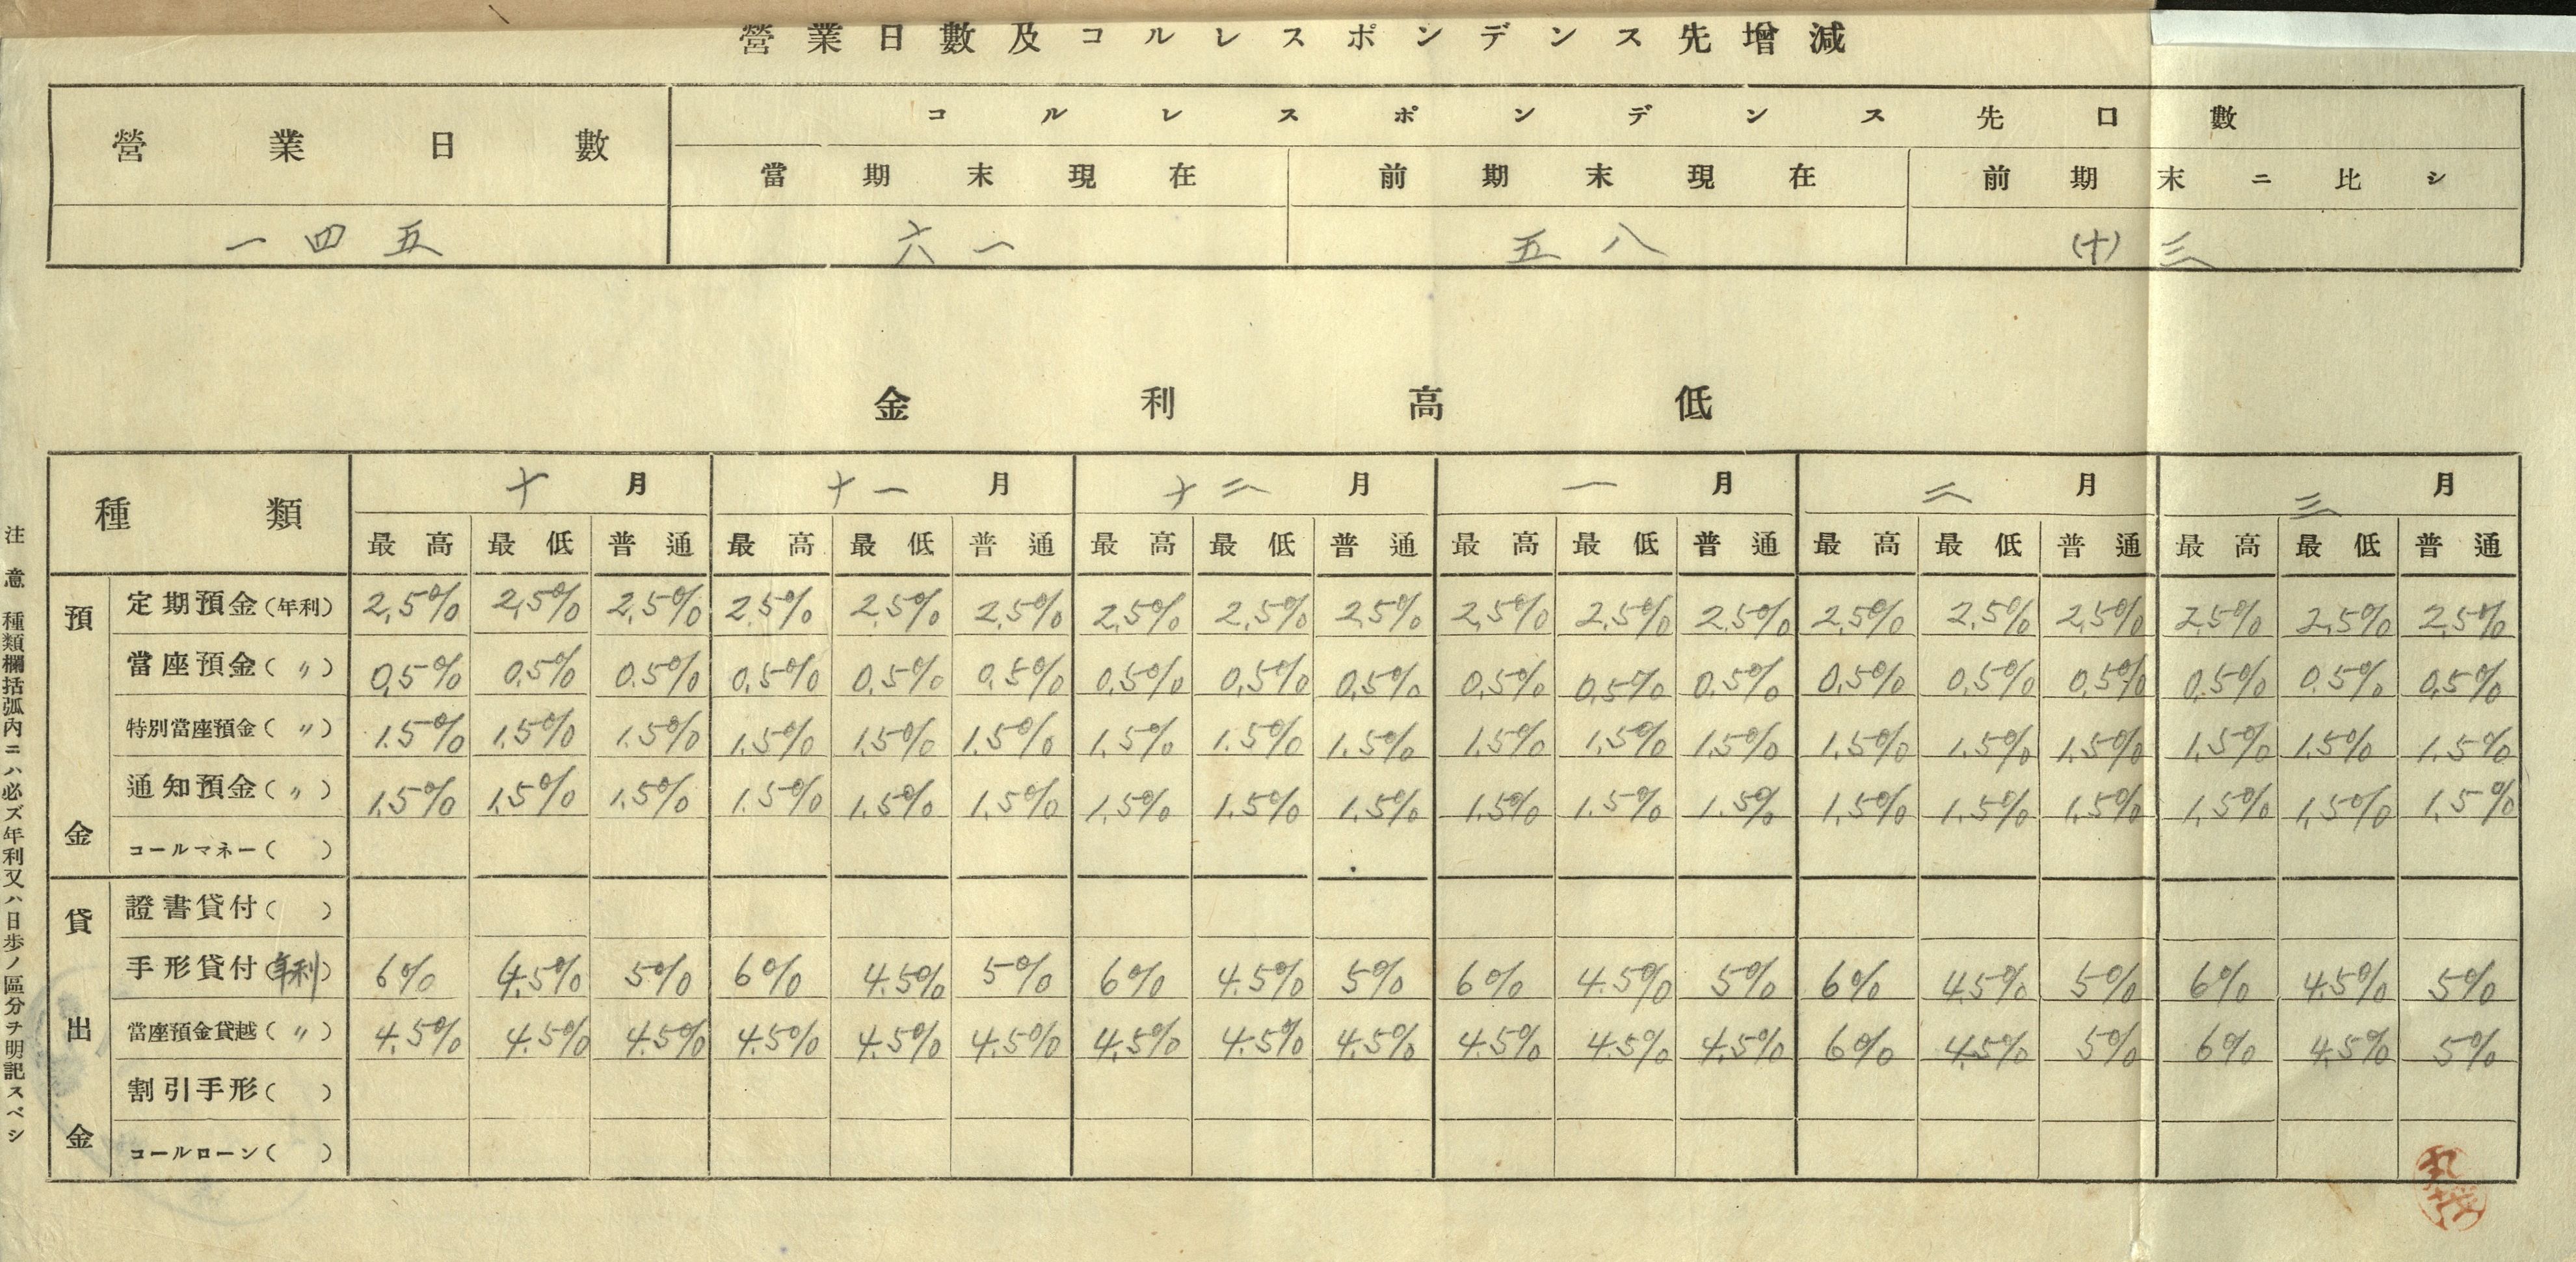 營業日數及コルレスポンデンス先增減
營業日數 コルレスポンデンス先口數
當期末現在 前期末現在 前期末ニ比シ
一四五 六一 五八 (十)三
金利高低
種類 十月 十一月 十二月 一月 二月 三月
最高 最低 普通 最高 最低 普通 最高 最低 普通 最高 最低 普通 最高 最低 普通 最高 最低 普通
預金
定期預金(年利) 2.5% 2.5% 2.5% 2.5% 2.5% 2.5% 2.5% 2.5% 2.5% 2.5% 2.5% 2.5% 2.5% 2.5% 2.5% 2.5% 2.5% 2.5%
當座預金(〃) 0.5% 0.5% 0.5% 0.5% 0.5% 0.5% 0.5% 0.5% 0.5% 0.5% 0.5% 0.5% 0.5% 0.5% 0.5% 0.5% 0.5% 0.5%
特別當座預金(〃) 1.5% 1.5% 1.5% 1.5% 1.5% 1.5% 1.5% 1.5% 1.5% 1.5% 1.5% 1.5% 1.5% 1.5% 1.5% 1.5% 1.5% 1.5%
通知預金(〃) 1.5% 1.5% 1.5% 1.5% 1.5% 1.5% 1.5% 1.5% 1.5% 1.5% 1.5% 1.5% 1.5% 1.5% 1.5% 1.5% 1.5% 1.5%
コールマネー( )
貸出金
證書貸付( )
手形貸付(年利) 6% 4.5% 5% 6% 4.5% 5% 6% 4.5% 5% 6% 4.5% 5% 6% 4.5% 5% 6% 4.5% 5%
當座預金貸越(〃) 4.5% 4.5% 4.5% 4.5% 4.5% 4.5% 4.5% 4.5% 4.5% 4.5% 4.5% 4.5% 6% 4.5% 5% 6% 4.5% 5%
割引手形( )
コールローン( )
注意 種類欄括弧內ニハ必ズ年利又ハ日步ノ區分ヲ明記スベシ